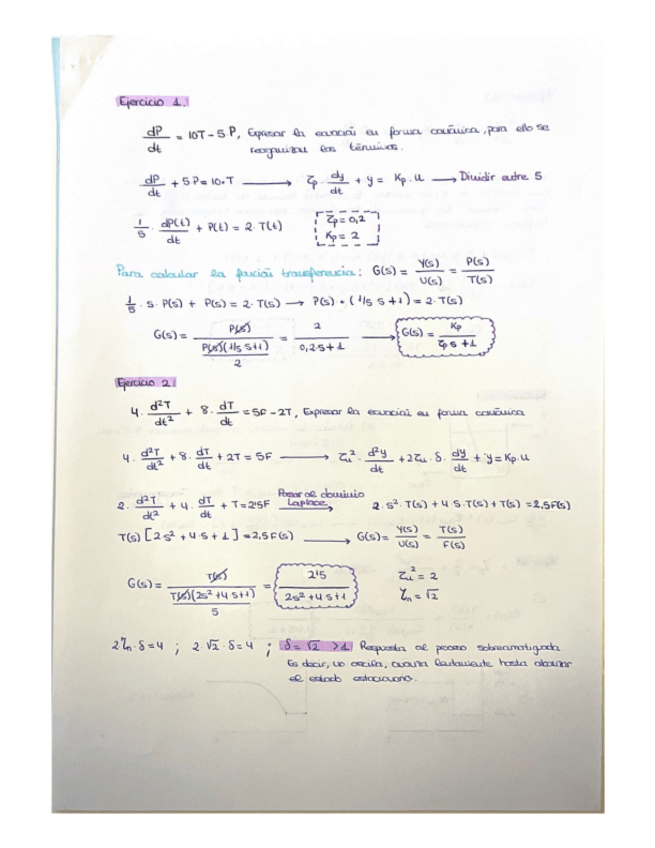 Ejercicio 1.
dP/dt = 10T - 5·P, Expresar la ecuación en forma canónica, para ello se
reorganizan los términos.
dP/dt + 5P = 10·T ⟶ τp · dy/dt + y = Kp·u ⟶ Dividir entre 5
1/5 · dP(t)/dt + P(t) = 2·T(t) τp = 0,2
Kp = 2
Para calcular la función transferencia: G(s) = Y(s)/U(s) = P(s)/T(s)
1/5 · s · P(s) + P(s) = 2·T(s) ⟶ P(s) · (1/5 s + 1) = 2·T(s)
G(s) = P(s) / (P(s)(1/5 s+1) / 2) = 2 / (0,2s + 1) ⟶ G(s) = Kp / (τp s + 1)
Ejercicio 2:
4 · d²T/dt² + 8 · dT/dt = 5F - 2T, Expresar la ecuación en forma canónica
4 · d²T/dt² + 8 · dT/dt + 2T = 5F ⟶ τn² · d²y/dt + 2τn · δ · dy/dt + y = Kp·u
2 · d²T/dt² + 4 · dT/dt + T = 2'5F Pasar al dominio Laplace ⟶ 2·s²·T(s) + 4·s·T(s) + T(s) = 2,5F(s)
T(s) [2s² + 4·s + 1] = 2,5F(s) ⟶ G(s) = Y(s)/U(s) = T(s)/F(s)
G(s) = T(s) / (T(s)(2s² + 4s+1) / 5) = 2'5 / (2s² + 4s+1) τn² = 2
τn = √2
2τn·δ = 4 ; 2·√2·δ = 4 ; δ = √2 > 1 Respuesta al proceso sobreamortiguada
Es decir, no oscila, avanza lentamente hasta alcanzar
el estado estacionario.